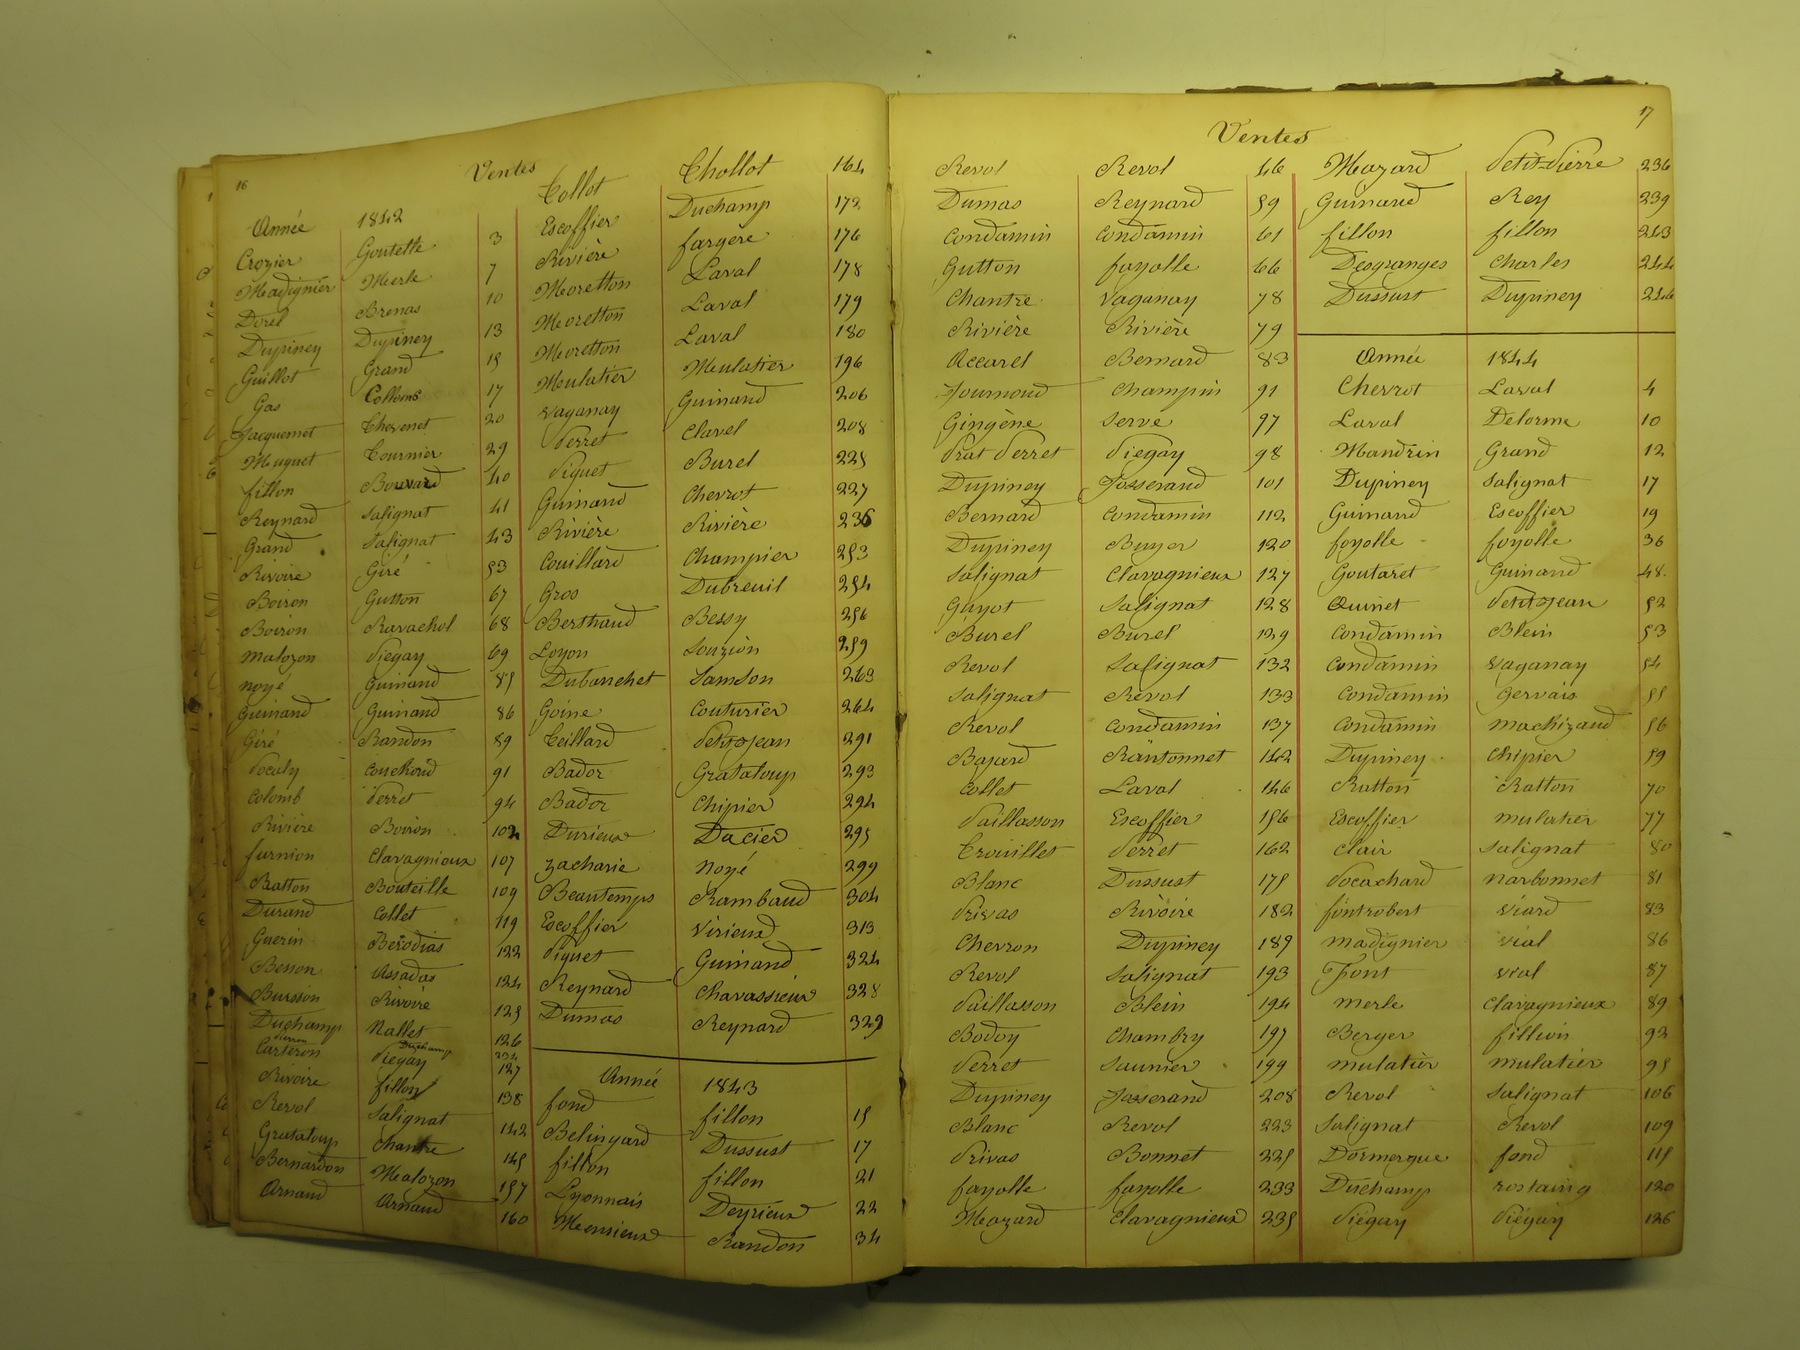 16
Ventes
Année 1842
Crozier Goutelle 3
Madignier Merle 7
Dorel Brenas 10
Dupiney Dupiney 13
Guillot Grand 15
Gas Collomb 17
Jacquemet Thevenet 20
Muguet Tournier 29
fillon Bouvard 40
Reynard Salignat 41
Grand Salignat 43
Rivoire Giré 53
Boiron Gutton 67
Boiron Ravachol 68
malozon Piégay 69
noyé Guinand 85
Guinand Guinand 86
Giré Randon 89
Pocaly couchoud 91
Colomb Perret 94
Rivière Boiron 102
furnion Clavagnieux 107
Ratton Bouteille 109
Durand Collet 119
Guerin Berodias 122
Besson Assadas 124
Buisson Rivoire 125
Duchamp Nallet 126
Pierron Duchamp 234
Carteron Piegay 127
Rivoire fillon 138
Revol Salignat 142
Grataloup Chantre 145
Bernardon Malozon 157
Arnaud Arnaud 160
Collot Chollot 164
Escoffier Duchamp 172
Rivière fargère 176
Moretton Laval 178
Moretton Laval 179
Moretton Laval 180
Mulatier Mulatier 196
Vaganay Guinand 206
Perret Clavel 208
Piguet Burel 225
Guinand Chevrot 227
Rivière Rivière 236
Couillard Champier 253
Gros Dubreuil 254
Berthaud Bessy 256
Loyon Souzion 259
Dubanchet Samson 263
Goine Couturier 264
Teillard Petitjean 291
Bador Grataloup 293
Bador Chipier 294
Durieux Dacier 295
Zacharie Noyé 299
Beautemps Rambaud 304
Escoffier Virieux 313
Piguet Guinand 324
Reynard Chavassieux 328
Dumas Reynard 329
Année 1843
fond fillon 15
Belingard Dussust 17
fillon fillon 21
Lyonnais Deyrieux 22
Monsieux Randon 34
17
Ventes
Revol Revol 46
Dumas Reynard 59
Condamin Condamin 61
Gutton fayolle 66
Chantre Vaganay 78
Rivière Rivière 79
Accarel Bernard 83
Journoud Champin 91
Gingène Serve 97
Prat Perret Piégay 98
Dupiney Josserand 101
Bernard Condamin 112
Dupiney Buyer 120
Salignat Clavagnieux 127
Guyot Salignat 128
Burel Burel 129
Revol Salignat 132
Salignat Revol 133
Revol Condamin 137
Bajard Rantonnet 142
Collet Laval 146
Paillasson Escoffier 156
Trouillet Perret 162
Blanc Dussust 175
Privas Rivoire 182
Chevron Dupiney 189
Revol Salignat 193
Paillasson Blein 194
Bodoy Chambry 197
Perret Saunier 199
Dupiney Josserand 208
Blanc Revol 223
Privas Bonnet 225
fayolle fayolle 233
Mazard Clavagnieux 235
Mazard Petit Pierre 236
Guinand Rey 239
fillon fillon 243
Desgranges Charles 244
Dussust Dupiney 246
Année 1844
Chevrot Laval 4
Laval Delorme 10
Mandrin Grand 12
Dupiney Salignat 17
Guinand Escoffier 19
fayolle fayolle 36
Goutaret Guinand 48
Quinet Petitjean 52
Condamin Blein 53
Condamin Vaganay 54
Condamin Gervais 55
Condamin machizaud 56
Dupiney Chipier 59
Ratton Ratton 70
Escoffier mulatier 77
Clair Salignat 80
Pocachard narbonnet 81
fontrobert Viard 83
madignier vial 86
Font vial 87
merle Clavagnieux 89
Berger fillion 92
mulatier mulatier 95
Revol Salignat 106
Salignat Revol 109
Dormergue fond 115
Duchamp rostaing 120
Piégay Piégay 126